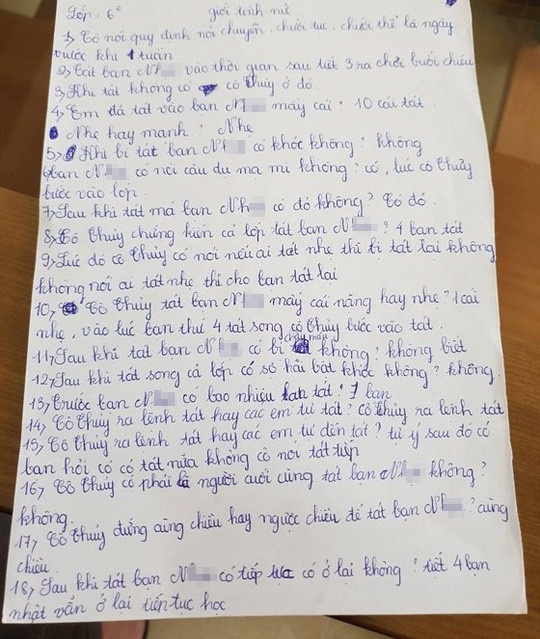 Lớp: 6² giới tính nữ
1, Cô nói quy định nói chuyện, chười tục, chười thề là ngày
trước khi 1 tuần
2, tát bạn Nh vào thời gian sau tiết 3 ra chơi buổi chiều
3, Khi tát không có cô thủy ở đó.
4, Em đã tát vào bạn N mấy cái? 10 cái tát
Nhẹ hay mạnh? Nhẹ
5, Khi bị tát bạn N có khóc không? không
6, bạn N có nói câu đu ma mi không? có, lúc cô thủy
bước vào lớp.
7, Sau khi tát má bạn Nh có đỏ không? Có đỏ.
8, Cô thủy chứng kiến cả lớp tát bạn N? 4 bạn tát
9, Lúc đó cô thủy có nói nếu ai tát nhẹ thì bị tát lại không
không nói ai tát nhẹ thì cho bạn tát lại
10, Cô thủy tát bạn N mấy cái nặng hay nhẹ? 1 cái
nhẹ, vào lúc bạn thứ 4 tát song cô thủy bước vào tát.
11, Sau khi tát bạn N có bị chảy máu không? không biết
12, Sau khi tát song cả lớp có sợ hãi bật khóc không? không.
13, trước bạn N có bao nhiêu bạn tát? 7 bạn
14, Cô thủy ra lệnh tát hay các em tự tát? Cô thủy ra lệnh tát
15, Cô thủy ra lệnh tát hay các em tự đến tát? tự ý sau đó có
bạn hỏi cô có tát nữa không cô nói tát tiếp
16, Cô thủy có phải là người cuối cùng tát bạn N không?
không.
17, Cô thủy đứng cùng chiều hay ngược chiều để tát bạn N? cùng
chiều
18, Sau khi tát bạn N có tiếp tục có ở lại không? tiết 4 bạn
nhật vẫn ở lại tiếp tục học